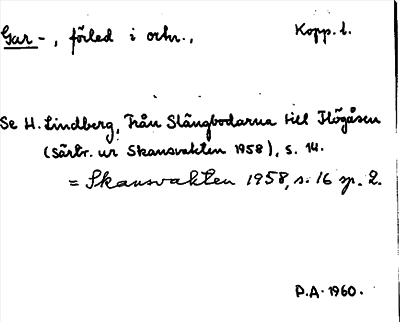 Gar-, förled i ortn., Kopp. l.
Se H. Lindberg, Från Slängbodarna till Högåsen
(Särtr. ur Skansvakten 1958), s. 14.
= Skansvakten 1958, s. 16 sp. 2.
P.A. 1960.